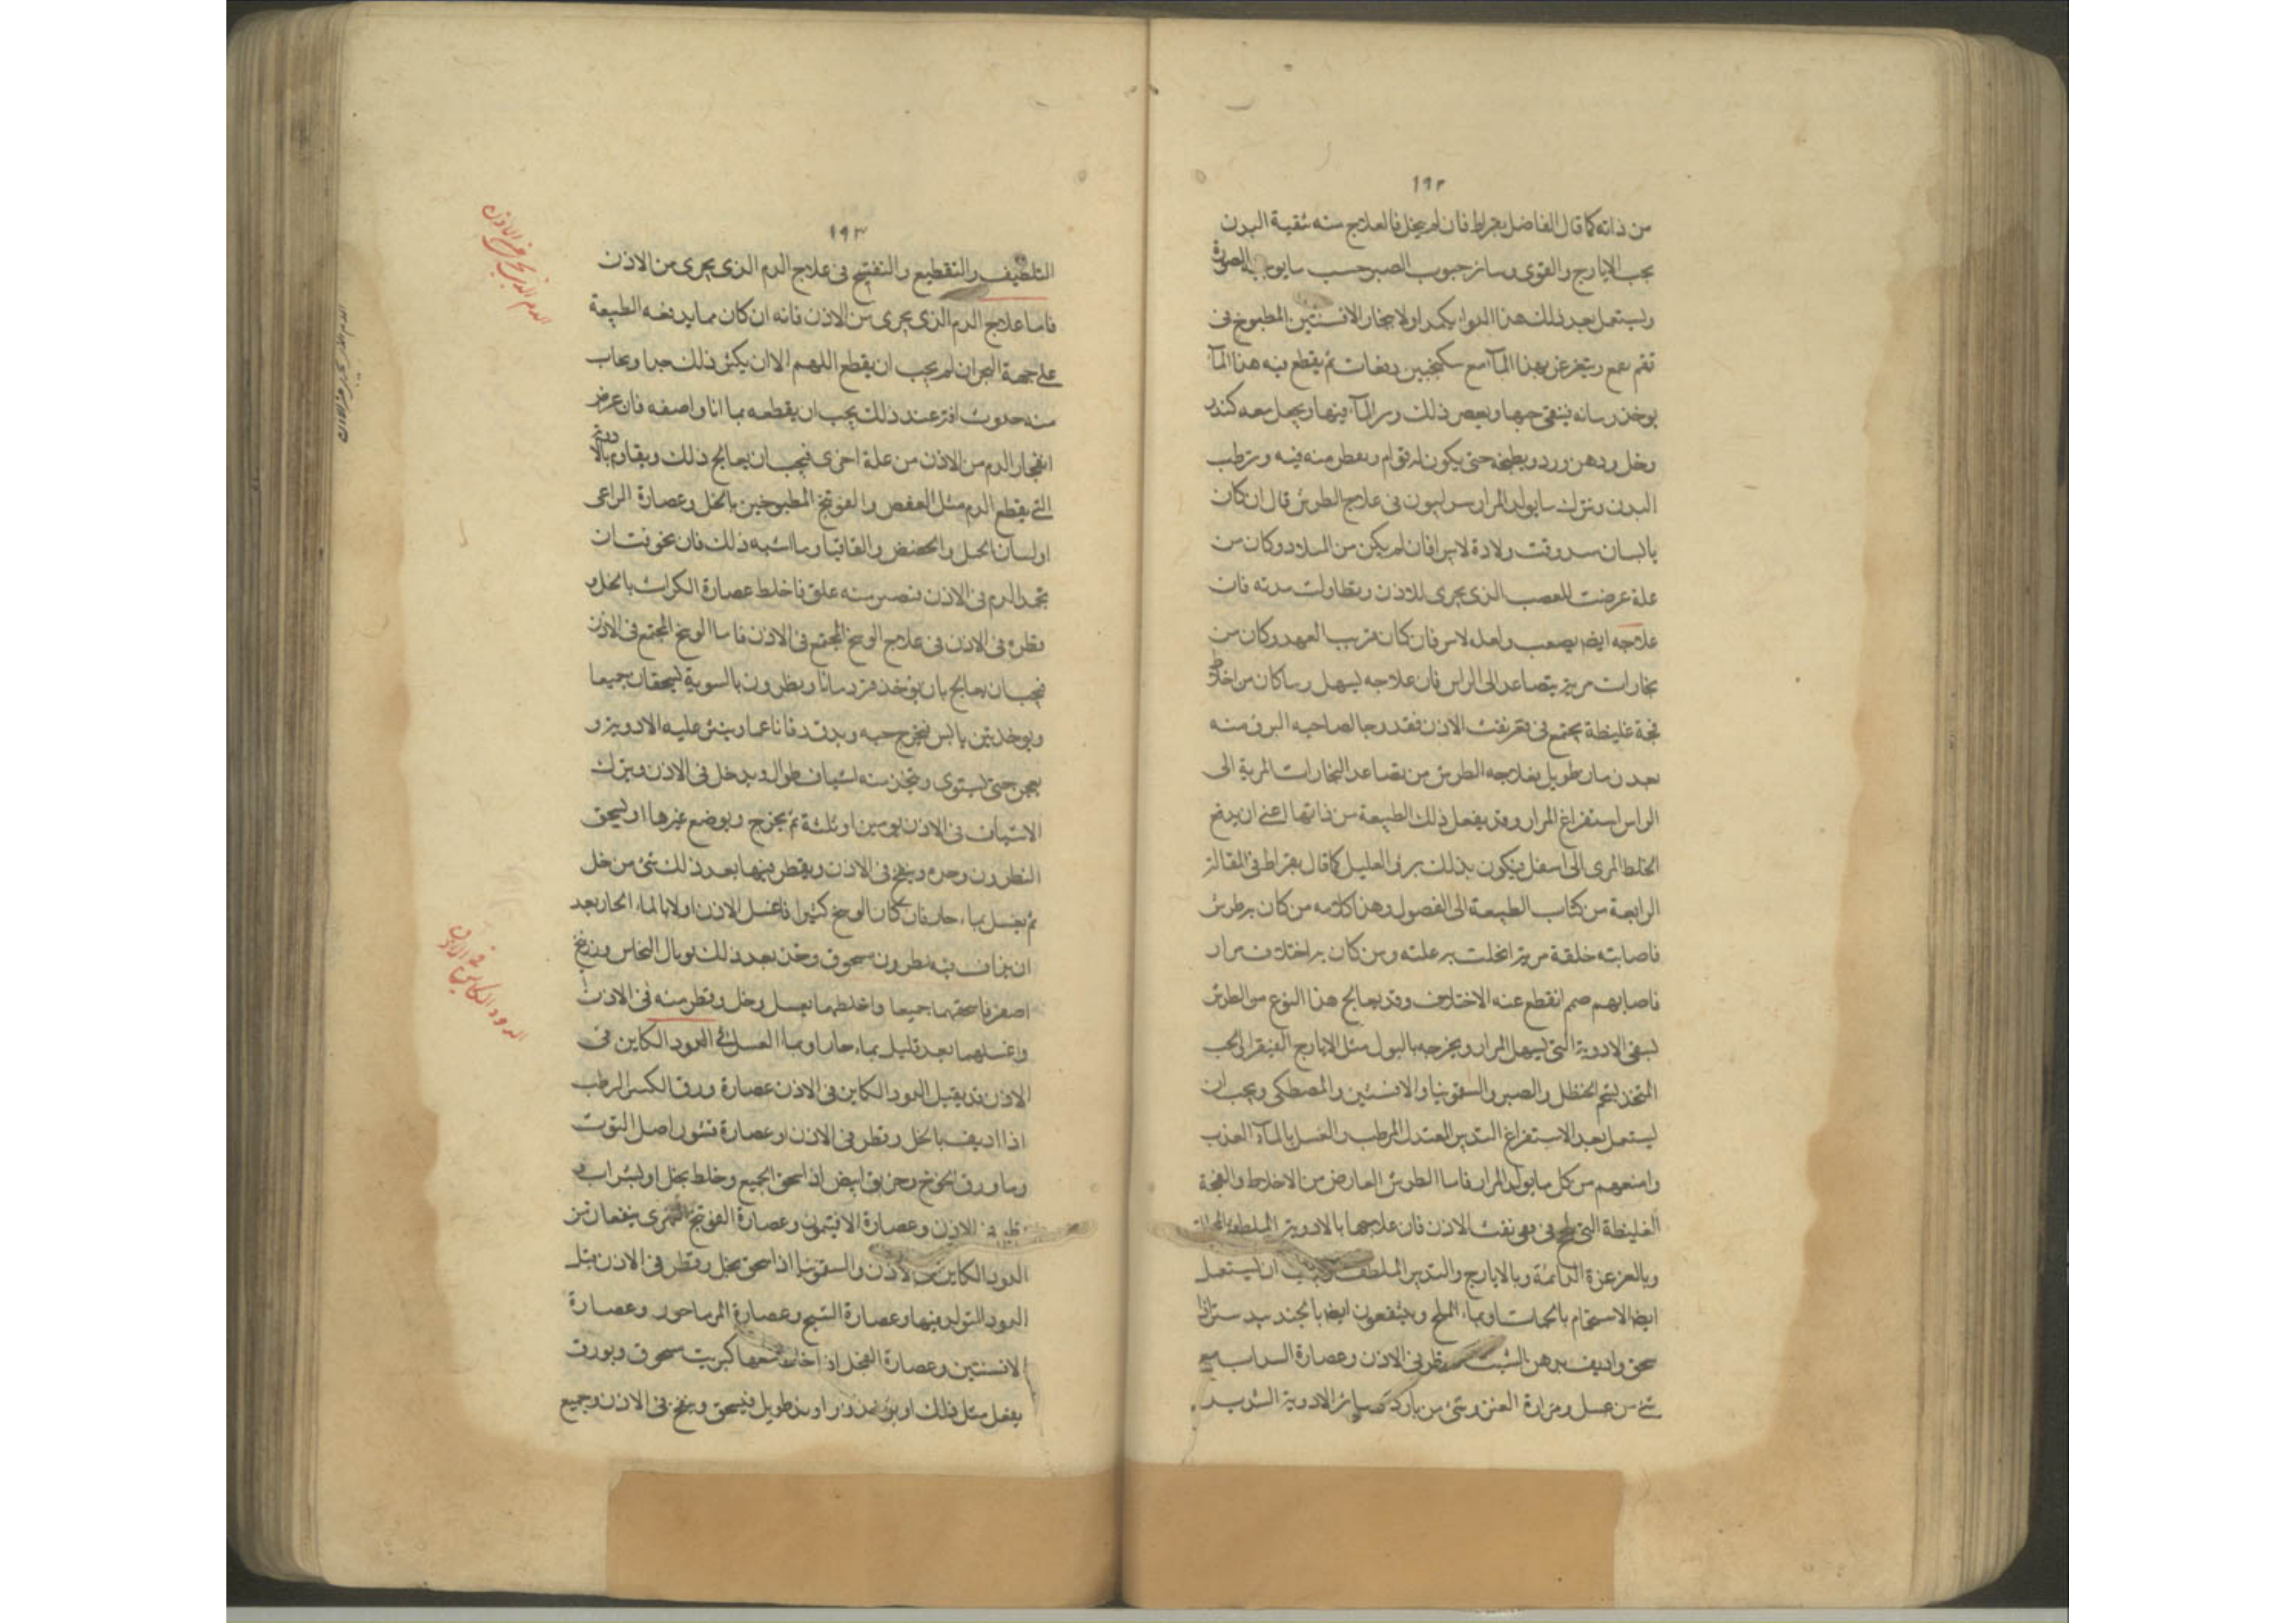 ١٩٢
من ذاته كما قال الفاضل بقراط فان لم يخل فالعلاج منه تنقية البدن
بحب الايارج والقوى وسائر حبوب الصبر حسب ما يوجبه الصورة
وليستعمل بعد ذلك هذا الدواء يكمد اولا ببخار الافسنتين المطبوخ فى
قمقم ويتغرغر بهذا المآء مع سكنجبين دفعات ثم يقطع فيه هذا المآء
يوخذ رمانه ينقى حبها ويعصر ذلك ويرد المآء فيها ويجعل معه كندر
وخل ودهن ورد ويطبخه حتى يكون له قوام ويقطر منه فيه ويرطب
البدن ويترك ما يولد المرار سرابيون فى علاج الطرش قال ان كان
بالانسان من وقت ولادة لا يبرا فان لم يكن من الميلاد وكان من
علة عرضت للعصب الذى يجرى للاذن وتطاولت مدته فان
علاجه ايضم يصعب ولعله لا يبرا فان كان قريب العهد وكان من
بخارات مريه يتصاعد الى الراس فان علاجه يسهل وما كان من اخلاط
فجة غليظة يجتمع فى ثقب الاذن فقد رجا لصاحبه البرؤ منه
بعد زمان طويل بعلاجه الطرش من تصاعد البخارات المرية الى
الراس استفراغ المرار وقد يفعل ذلك الطبيعة من ذاتها اعنى ان يدفع
الخلط المرى الى اسفل فيكون بذلك برؤ العليل كما قال بقراط فى المقالة
الرابعة من كتاب الطبيعة الى الفصول وهذا كلامه من كان به طرش
فاصابته خلفة مريه انحلت به علته ومن كان به اختلاف مرار
فاصابهم صمم انقطع عنه الاختلاف وقد يعالج هذا النوع من الطرش
بسقى الادوية التى يسهل المرار ويخرجه بالبول مثل الايارج الفيقرا الى حب
المتخذ بشحم الحنظل والصبر والسقمونيا والافسنتين والمصطكى ويجب ان
يستعمل بعد الاستفراغ التدبير المعتدل المرطب والغسل بالمآء العذب
وامنعهم من كل ما يولد المرار فاما الطرش العارض من الاخلاط الفجة
الغليظة التى فى ثقب الاذن فان علاجها بالادوية الملطفة
وبالغرغرة الدائمة وبالايارج والتدبير الملطف ويجب ان يستعمل
ايضا الاستحمام بالحمات وبماء الملح وينتفعون ايضا بالجندبيدستر اذا
سحق واديف بدهن الشبت وقطر فى الاذن وعصارة السداب مع
شئ من عسل ومرارة العنز وشئ من بارد وسائر الادوية الشديد
١٩٣
التلطيف والتقطيع والتفتيح فى علاج الدم الذى يجرى من الاذن
فاما علاج الدم الذى يجرى من الاذن فانه ان كان مما يدفعه الطبيعة
على جهة البحران لم يجب ان يقطع اللهم الا ان يكثر ذلك جدا ويخاف
منه حدوث افة عند ذلك يجب ان يقطعه بما انا واصفه فان عرض
انفجار الدم من الاذن من علة اخرى فيجب ان يعالج ذلك ويقاوم بالادوية
التى يقطع الدم مثل العفص والفوتنج المطبوخين بالخل وعصارة الراعى
او لسان الحمل والحضض والقاقيا وما اشبه ذلك فان تخوفت ان
يجمد الدم فى الاذن فتصير منه علق فاخلط عصارة الكراث بالخل و
قطره فى الاذن فى علاج الوسخ المجتمع فى الاذن فاما الوسخ المجتمع فى الاذن
فيجب ان يعالج بان يوخذ قردمانا ونطرون بالسوية يسحقان جميعا
ويوخذ تين يابس فيخرج حبه ويدق دقا ناعما وينثر عليه الادوية و
يعجن حتى يستوى ويتخذ منه اشياف طوال ويدخل فى الاذن ويترك
الاشياف فى الاذن يومين او ثلثة ثم يخرج ويوضع غيرها او يسحق
النطرون وحده وينفخ فى الاذن ويقطر فيها بعد ذلك شئ من خل
ثم يغسل بماء حار فان كان الوسخ كثيرا فاغسل الاذن اولا بالماء الحار بعد
ان يداف فيه نطرون مسحوق وخذ بعد ذلك توبال النحاس وزرنيخ
اصفر فاسحقهما جميعا واخلطهما بعسل وخل وقطر منه فى الاذن
واغسلهما بعد قليل بماء حار او بماء العسل فى الدود الكاين فى
الاذن قد يقتل الدود الكاين فى الاذن عصارة ورق الكبر الرطب
اذا اديف بالخل وقطر فى الاذن او عصارة قشور اصل التوت
وماء ورق الخوخ وخربق ابيض اذا سحق الجميع وخلط بخل او بشراب و
قطر فى الاذن وعصارة الافتيمون وعصارة الفوتنج النهرى ينفعان من
الدود الكاين فى الاذن والسقمونيا اذا سحق بخل وقطر فى الاذن قتل
الدود المتولد فيها وعصارة الشيح وعصارة المرماحور وعصارة
الافسنتين وعصارة الفجل اذا خلط معها كبريت مسحوق وبورق
يفعل مثل ذلك او زراوند طويل فيسحق وينفخ فى الاذن وجميع
الدم الذى يجرى من الاذن
الدود الكاين فى الاذن